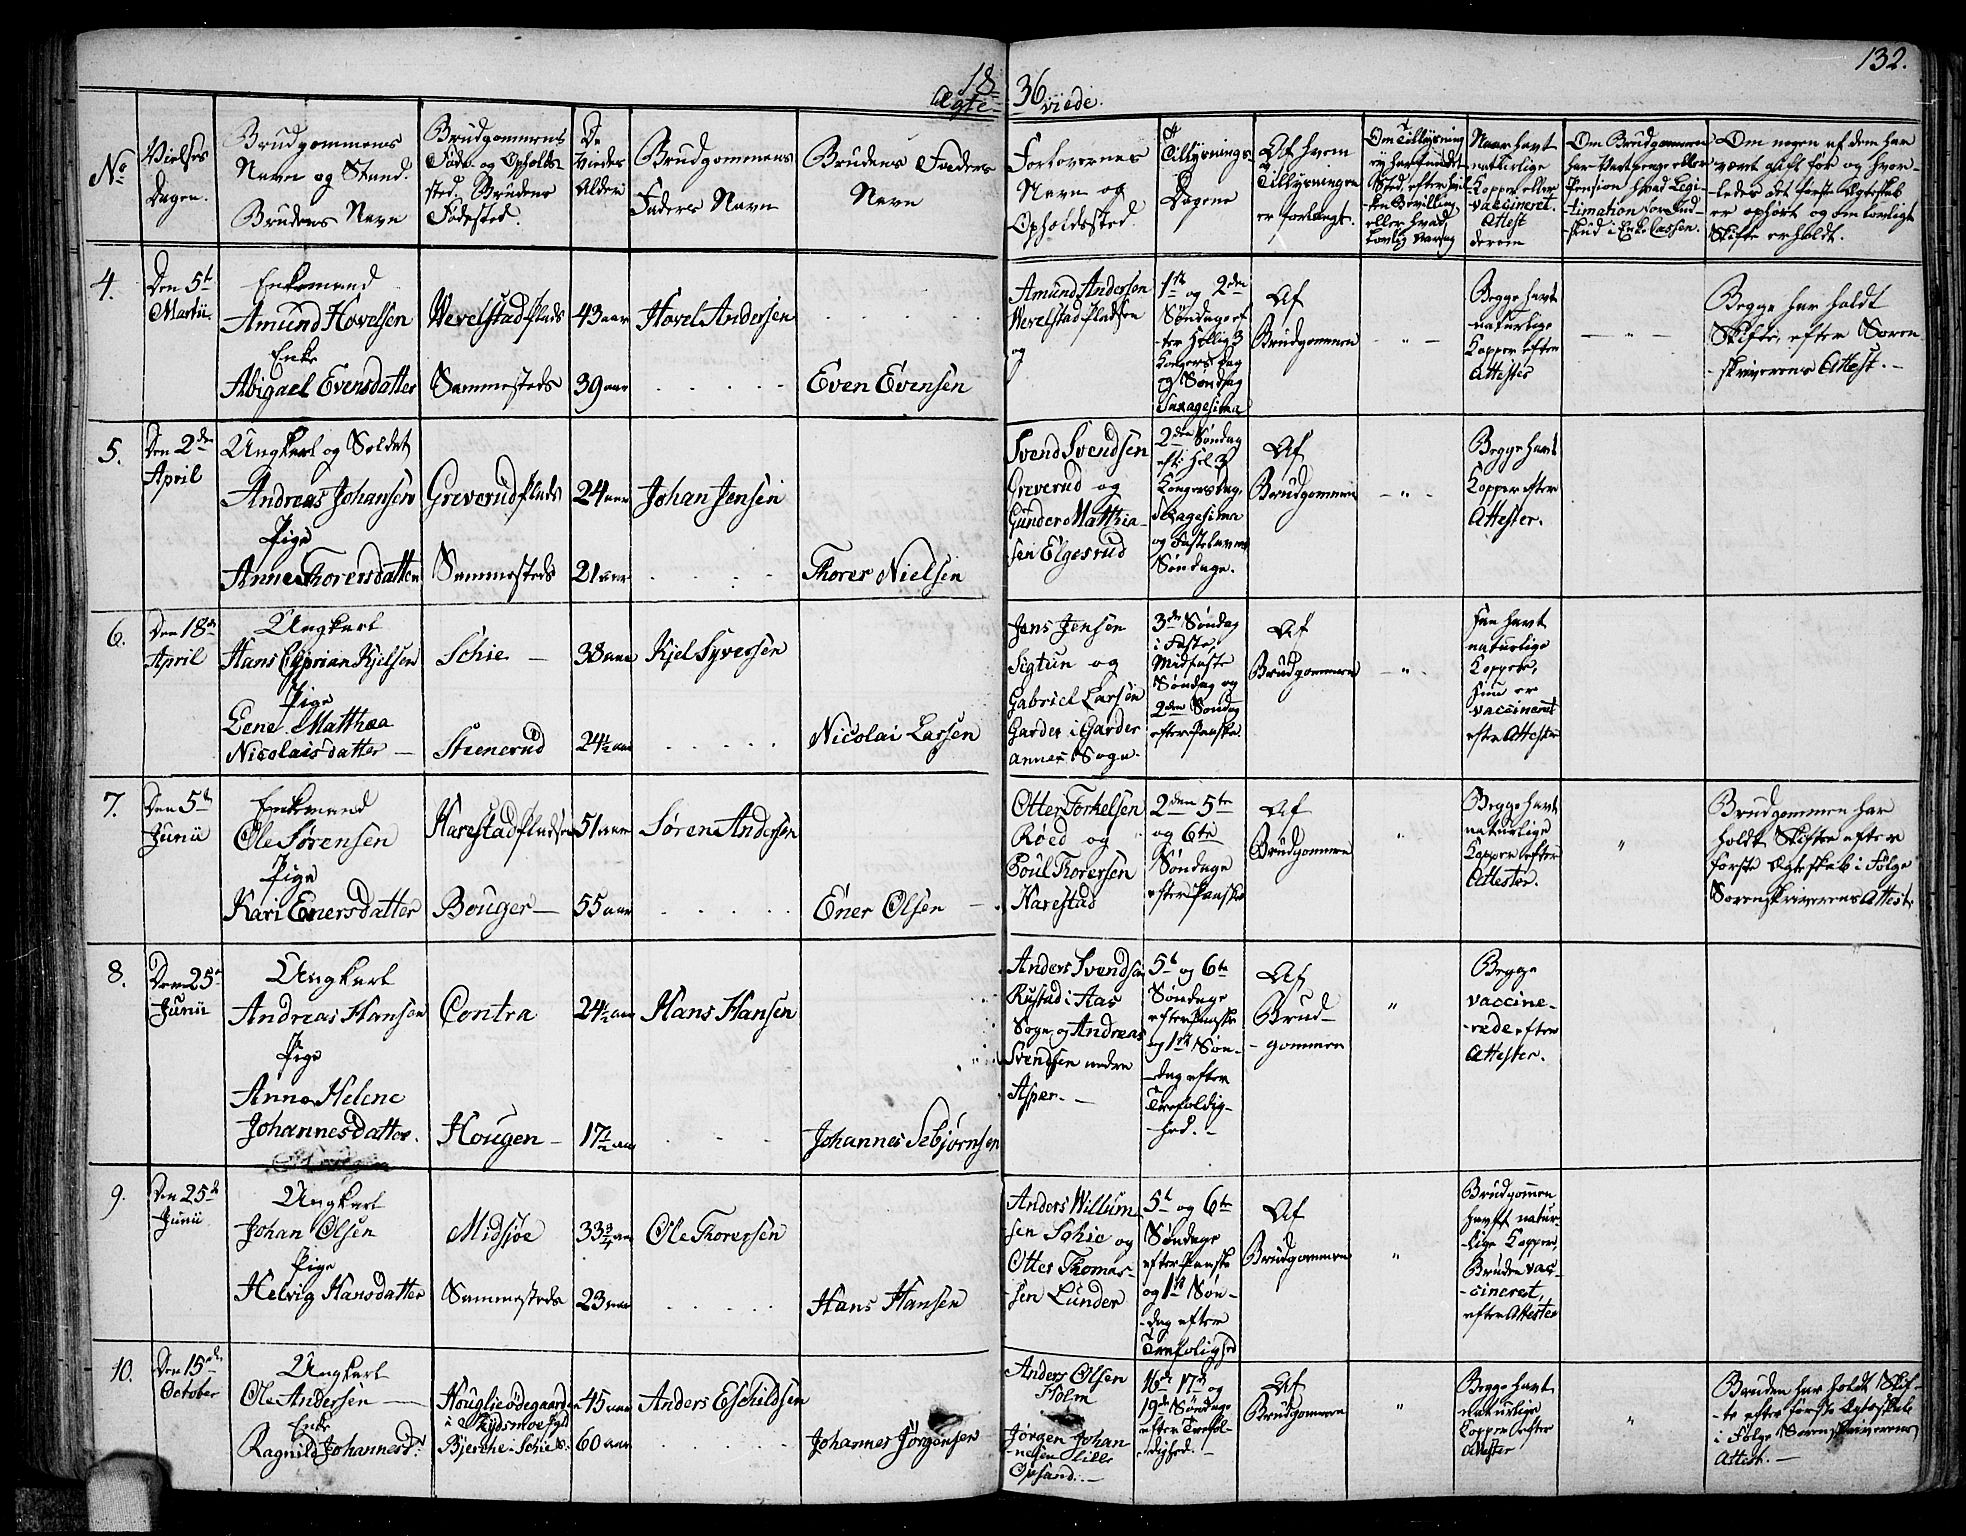 1836
132.
Ægteviede.
No
Vielses Dagen.
Brudgommens Navn og Stand. Brudens Navn
Brudgommens Føde- og Opholdssted, Brudens Fødested.
De Viedes Alder
Brudgommens Faders Navn
Brudens Faders Navn
Forlovernes Navn og Opholdssted.
Tillysnings-Dagene
Af hvem Tillysningen er forlangt.
Naar havt naturlige Kopper eller vaccineret. Attest derom
Om Brudgommen har Vartpenge eller Pension hvad Legitimation for Indskud i Enke Cassen.
Om nogen af dem har været gift før og hvorledes det første Ægteskab er ophørt og om lovligt Skifte er holdt.
4.
Den 5te
Martii.
Enkemand
Amund Hovelsen
Enke
Abigael Evensdatter
Wevelstadplads
Sammesteds
43 aar
39 aar
Hovel Andersen
Even Evensen
Amund Andersen
Wevelstadpladsen
og
1ste og 2den
Søndage ef
-ter Hellig 3
Kongers Dag
og Søndag
Sexagesima
Af
Brudgommen
Begge havt
naturlige
Kopper efter
Attester
Begge har holdt
Skifte, efter Soren
-skriverens Attest.-
5.
Den 2den
April
Ungkarl og Soldat
Andreas Johansen
Pige
Anne Thorersdatter
Greverudplads
Sammesteds
24 aar
21 aar
Johan Jensen
Thorer Nielsen
Svend Svendsen
Greverud og
Gunder Matthia-
sen Elgesrud
2den Søndag
eft: Hel 3
Kongersdag,
Sexagesima
og Fastelavns
Søndage.
Af
Brudgommen
Begge havt
Kopper efter
Attester.
6.
Den 18de
April
Ungkarl
Hans Cyprian Kjelsen
Pige
Lene Matthea
Nicolaisdatter -
Schie -
Steenerud
38 aar
24½ aar
Kjel Syversen
Nicolai Larsen
Jens Jensen
Sigtun og
Gabriel Larsen
Garder i Garder
annex Sogn.
3de Søndag
i Faste,
Midfaste
Søndag og
2den Søndag
efter Paaske.
Af
Brudgommen
Han havt
naturlige
Kopper,
hun er
vaccineret
efter Attester
7.
Den 5te
Junii
Enkemand
Ole Sørensen
Pige
Kari Enersdatter
Harestadpladsen
Bouger -
51 aar
55 aar
Søren Andersen
Ener Olsen -
Otter Torkelsen
Røed og
Poul Thorersen
Harestad
2den 5te
og 6te
Søndage
efter Paaske
Af
Brudgommen
Begge havt
naturlige
Kopper efter
Attester.
Brudgommen har
holdt Skifte efter
første Ægteskab i Følge
Sorenskriverens Attest.
8.
Den 25de
Junii
Ungkarl
Andreas Hansen
Pige
Anne Helene
Johannesdatter.
Contra
Hougen -
24½ aar
17½ aar
Hans Hansen
Johannes Sebjørnsen
Anders Svendsen
Rustad i Aas
Sogn og Andreas
Svendsen nedre
Asper.-
5te og 6te
Søndage
efter Paaske
og 1ste Søn-
-dag efter
Trefoldig-
-hed.-
Af
Brud-
-gommen
Begge
vaccine-
-rede efter
Attester.
9.
Den 25de
Junii
Ungkarl
Johan Olsen
Pige
Helvig Hansdatter
Midsjøe
Sammesteds
33¾ aar
23 aar
Ole Thorersen
Hans Hansen
Anders Willum-
sen Schie og
Otter Thomas-
sen Lunder
5te og 6te
Søndage
efter Paaske
og 1ste Søn-
-dag efter
Trefolighed
Af
Brudgommen
Brudgommen
havt natur-
-lige Kopper,
Bruden vac-
-cineret,
efter Attester
10.
Den 15de
October
Ungkarl
Ole Andersen
Enke
Ragnild Johannesd:
Hougliødegaard
i Kydsmoe Sgl
Bjerche i Schie S:
45 aar
60 aar
Anders Eschildsen
Johannes Jørgensen
Anders Olsen
Holm
Jørgen Johan
-nesen Lille
Opsand.-
16de 17de og
19de Søndage
efter Trefol-
-dighed.-
Af
Brudgommen
Begge havt
naturlige
Kopper efter
Attester
Bruden har holdt Skif-
-te efter første Ægteskab
i Følge Sorenskriverens
Attest.-